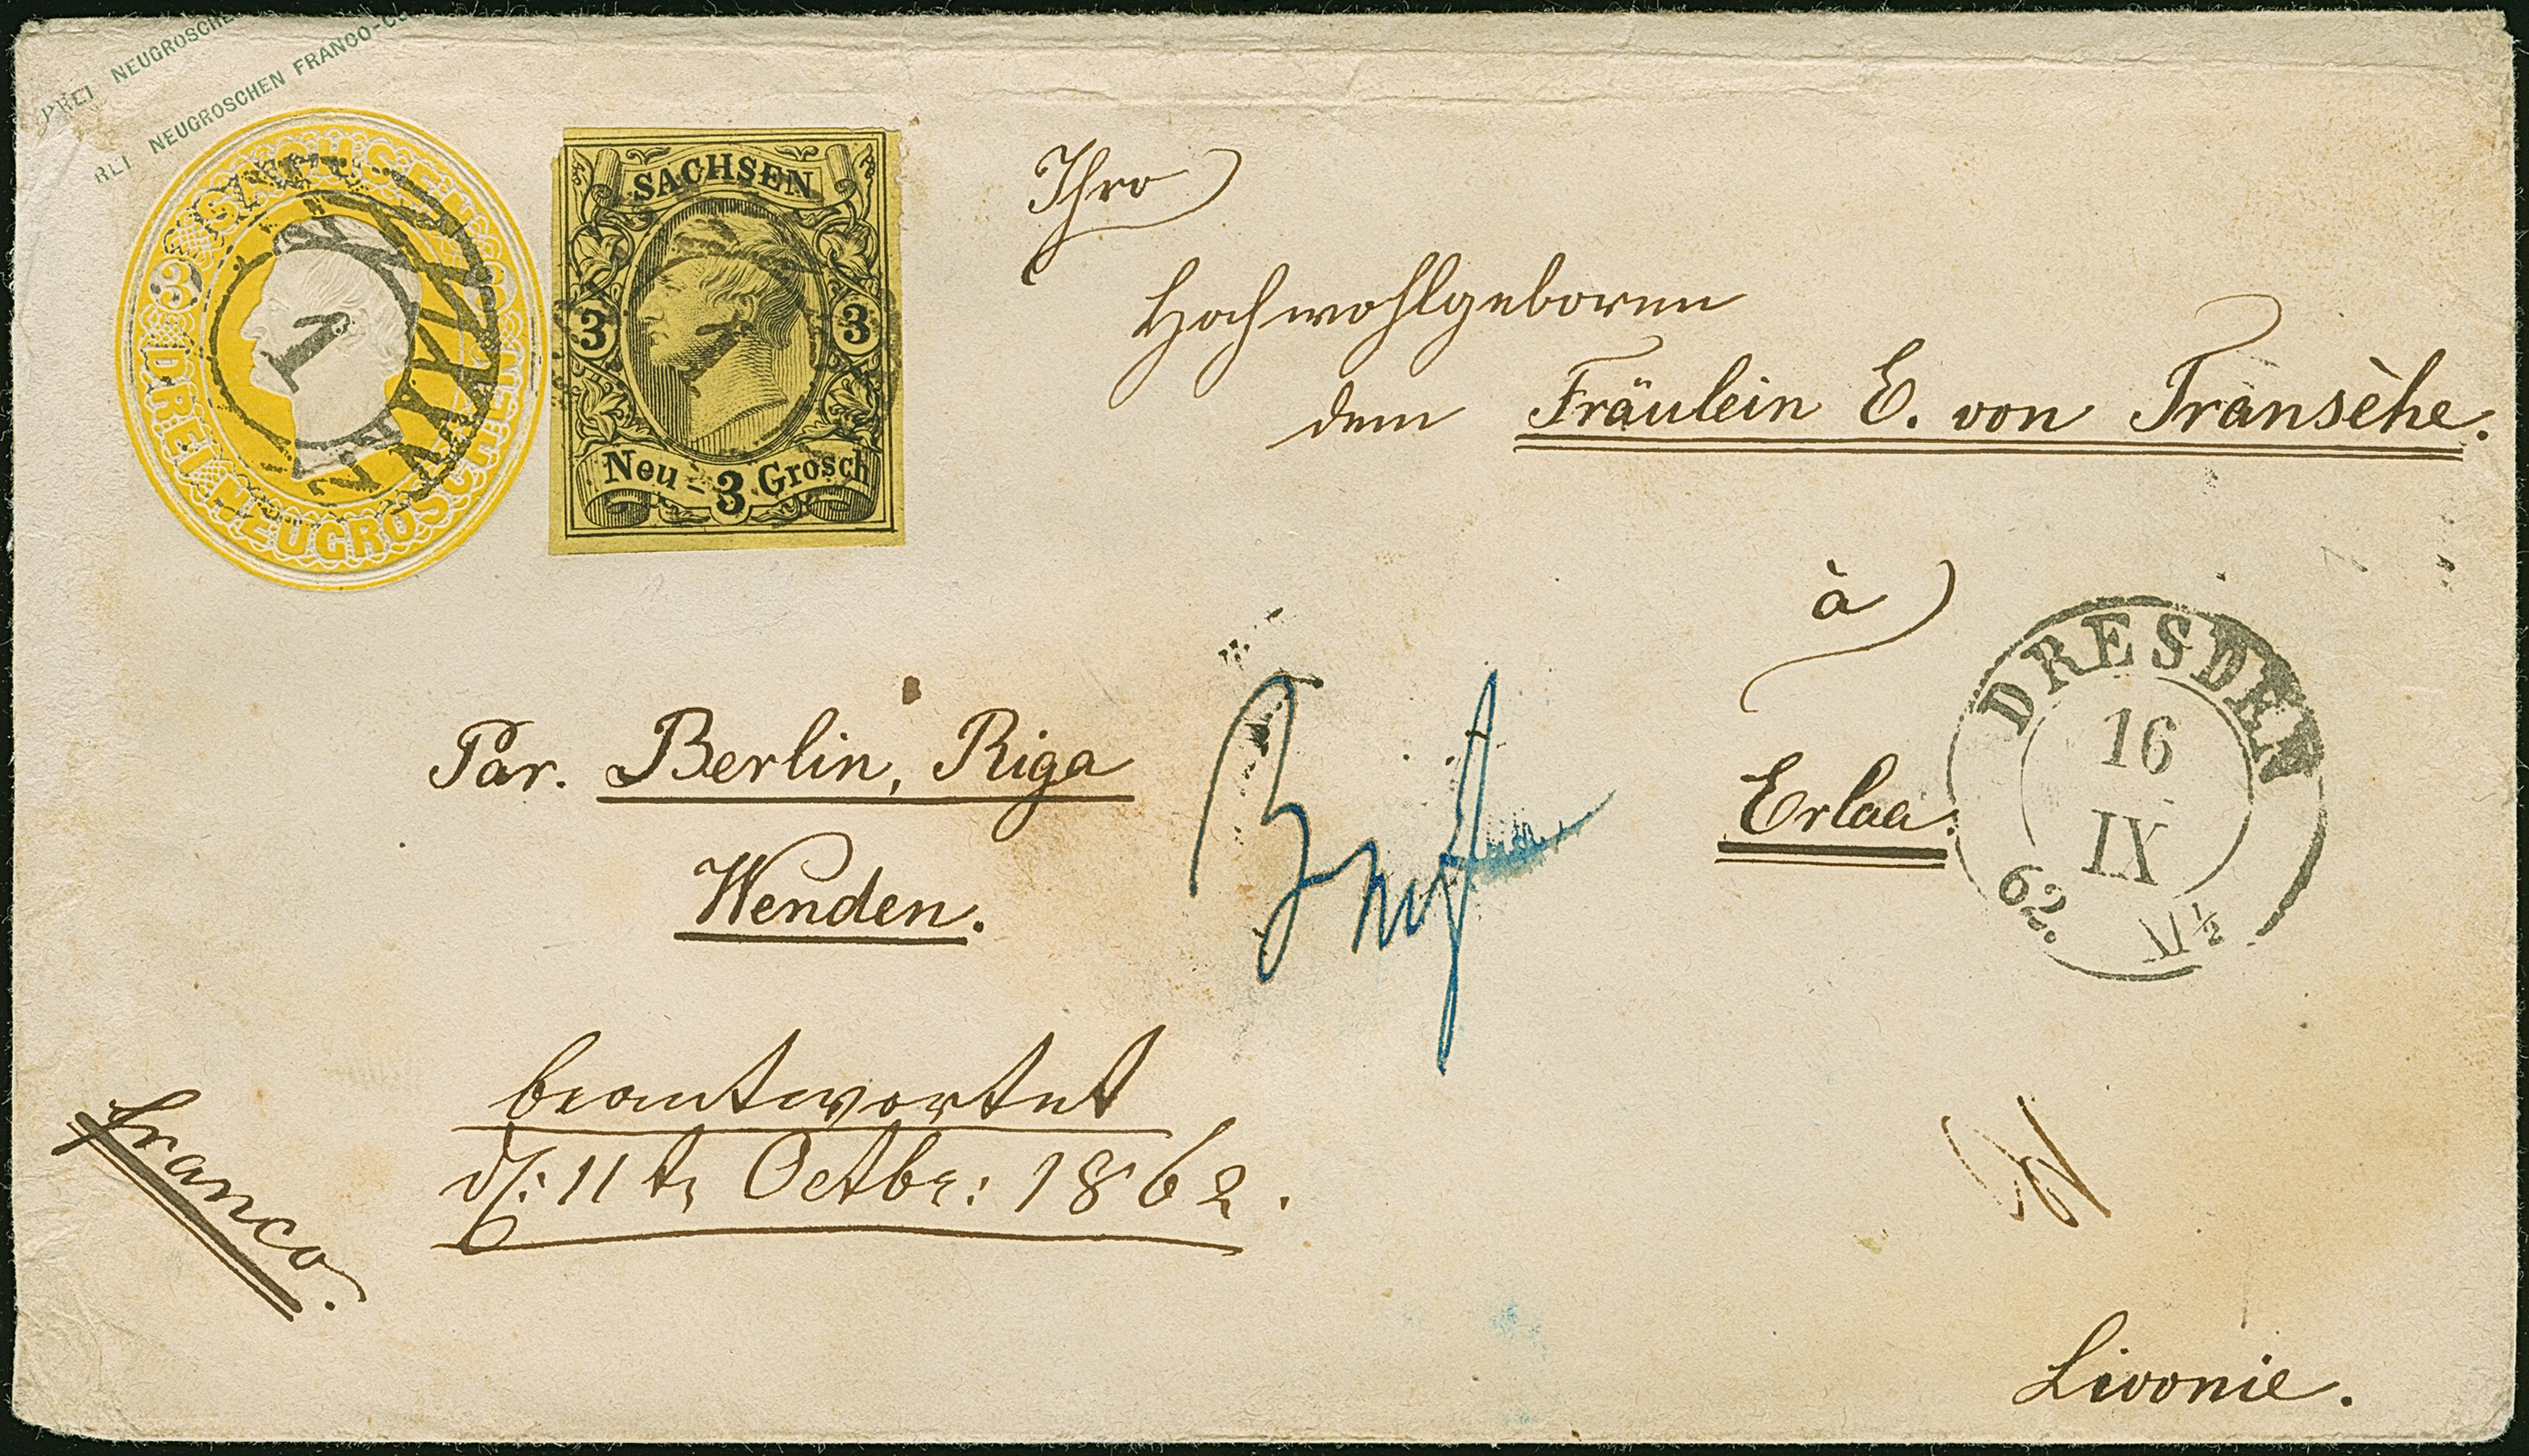 DREI NEUGROSCHE
NEUGROSCHEN FRANCO-CO
SACHSEN
3
DREI NEUGROSCHEN
1
SACHSEN
3 3
Neu-3 Grosch
Ihro
Hochwohlgeboren
dem Fräulein E. von Transèhe.
à
DRESDEN
16
IX
62. 11½
Par. Berlin, Riga
Erlaa.
Wenden.
beantwortet
d. 11 t. Octbr: 1862.
franco.
Livonie.